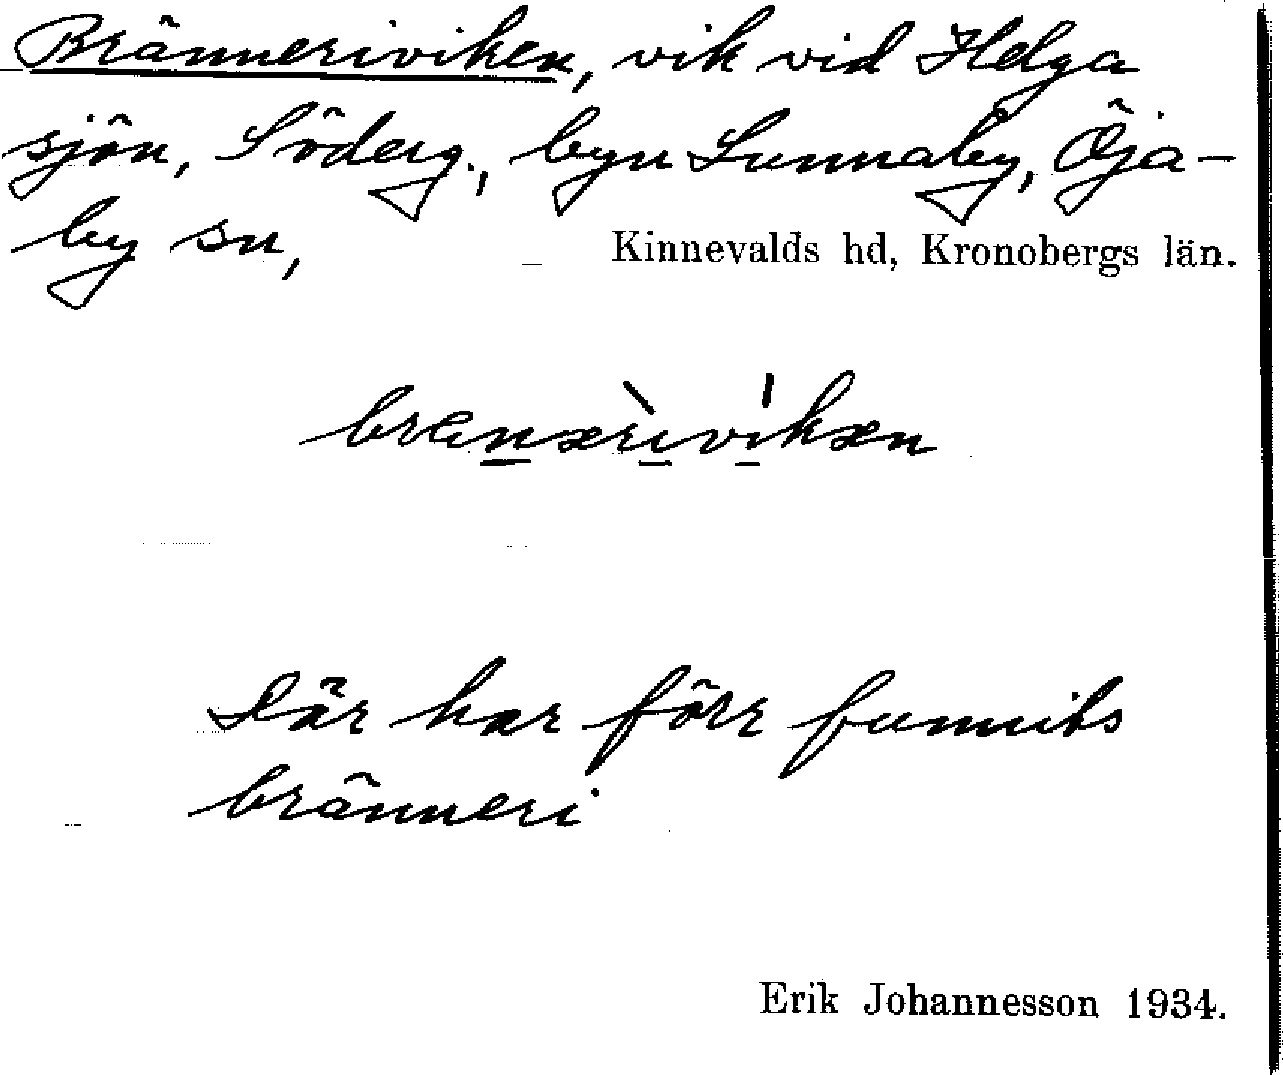 Bränneriviken, vik vid Helga
sjön, Söderg., byn Lunnaby, Öja-
by sn,
Kinnevalds hd, Kronobergs län.
brenæriviкæn
Där har förr funnits
bränneri
Erik Johannesson 1934.